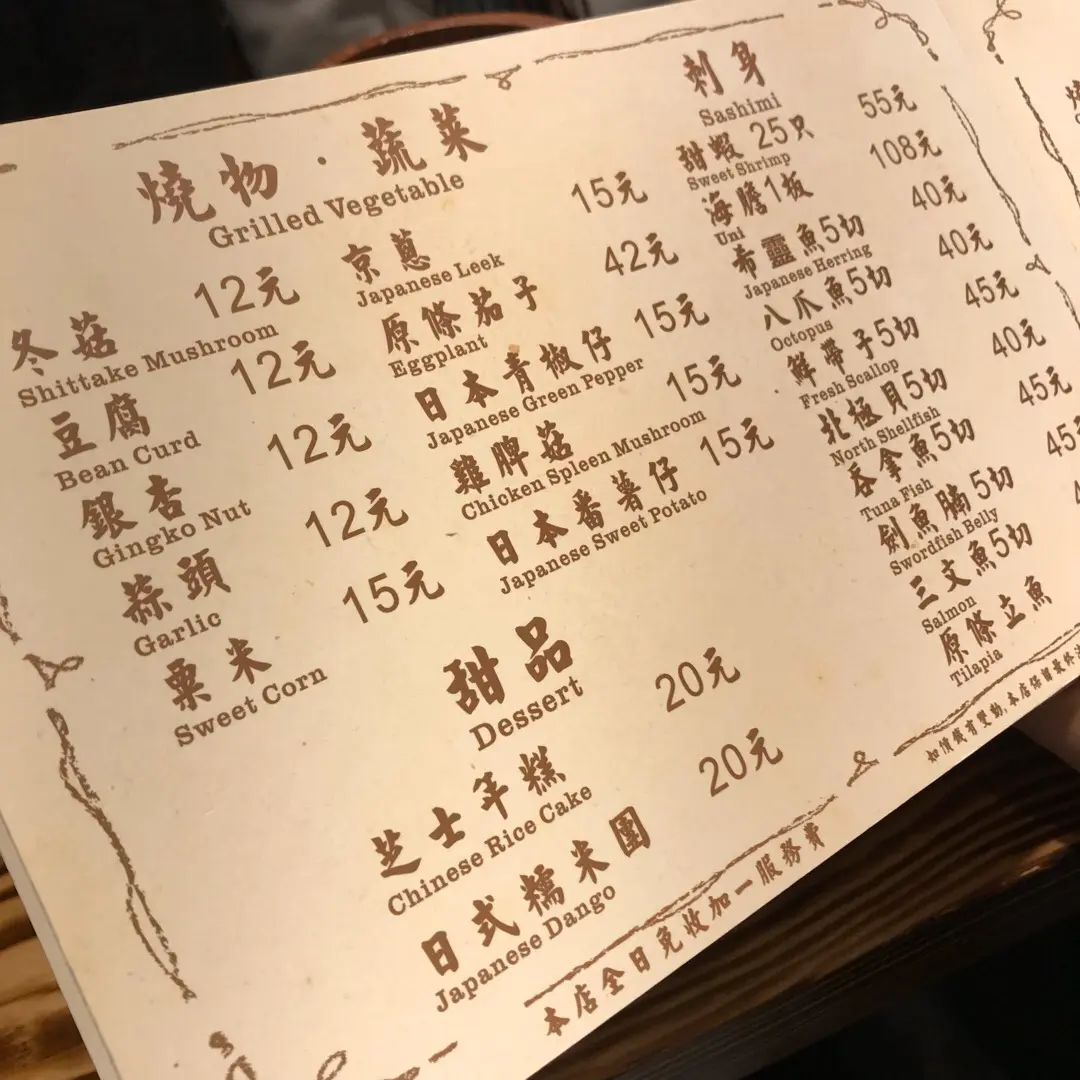 燒物·蔬菜
Grilled Vegetable
冬菇 12元
Shittake Mushroom
豆腐 12元
Bean Curd
銀杏 12元
Gingko Nut
蒜頭 12元
Garlic
粟米 15元
Sweet Corn
京蔥 15元
Japanese Leek
原條茄子 42元
Eggplant
日本青椒仔 15元
Japanese Green Pepper
雞脾菇 15元
Chicken Spleen Mushroom
日本番薯仔 15元
Japanese Sweet Potato
甜品
Dessert
芝士年糕 20元
Chinese Rice Cake
日式糯米團 20元
Japanese Dango
刺身
Sashimi
甜蝦 25只 55元
Sweet Shrimp
海膽1板 108元
Uni
希靈魚5切 40元
Japanese Herring
八爪魚5切 40元
Octopus
鮮帶子5切 45元
Fresh Scallop
北極貝5切 40元
North Shellfish
吞拿魚5切 45元
Tuna Fish
劍魚腩5切 45元
Swordfish Belly
三文魚5切
Salmon
原條立魚
Tilapia
本店全日免收加一服務費
如價錢有變動,本店保留最終